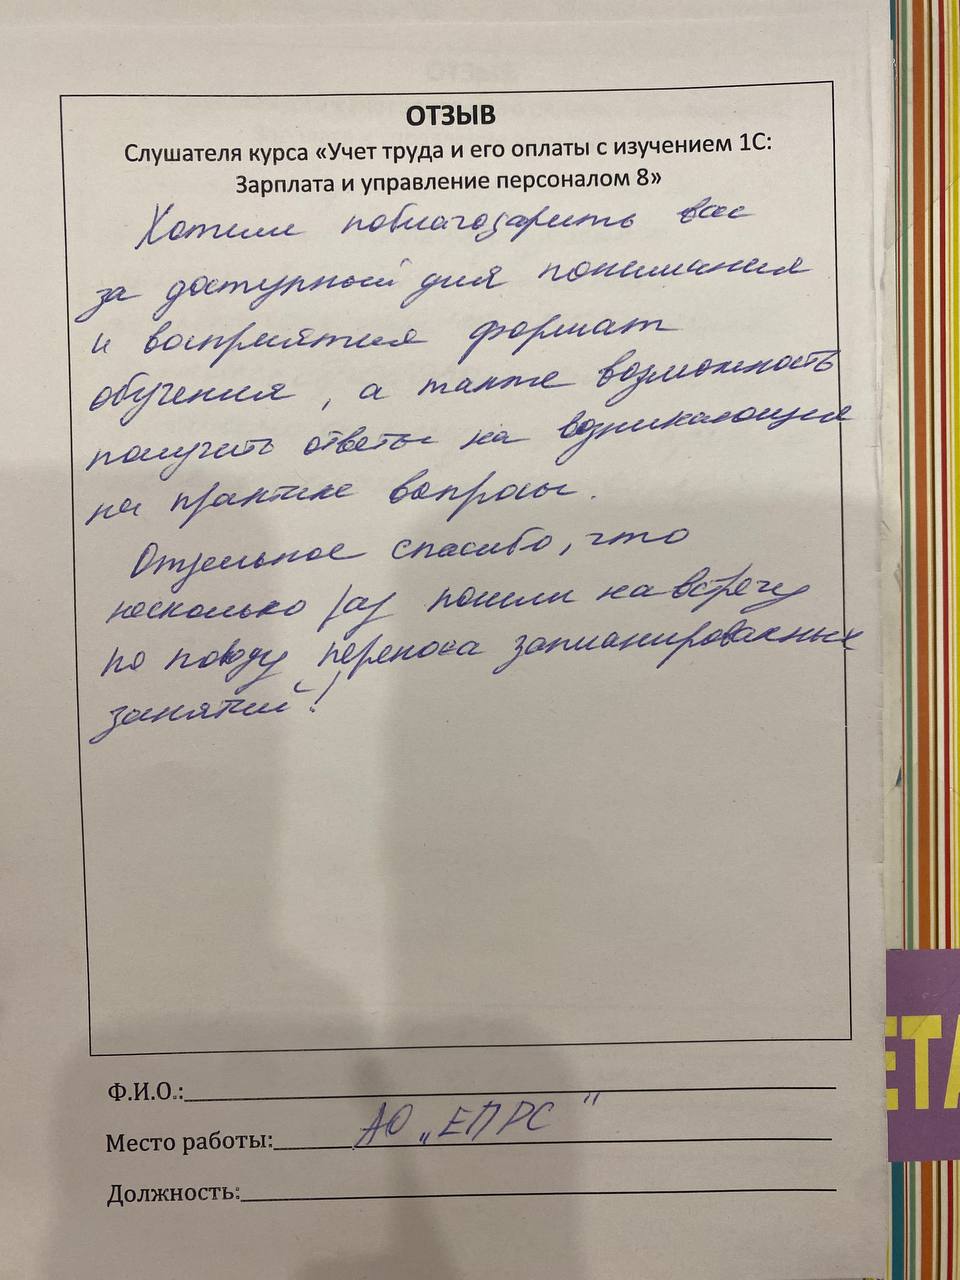 ОТЗЫВ
Слушателя курса «Учет труда и его оплаты с изучением 1С:
Зарплата и управление персоналом 8»
Хотим поблагодарить вас
за доступный для понимания
и восприятия формат
обучения, а также возможность
получить ответы на возникающие
на практике вопросы.
Отдельное спасибо, что
несколько раз пошли на встречу
по поводу переноса запланированных
занятий!
Ф.И.О.:
Место работы: АО „ЕПРС"
Должность:
ЕТА